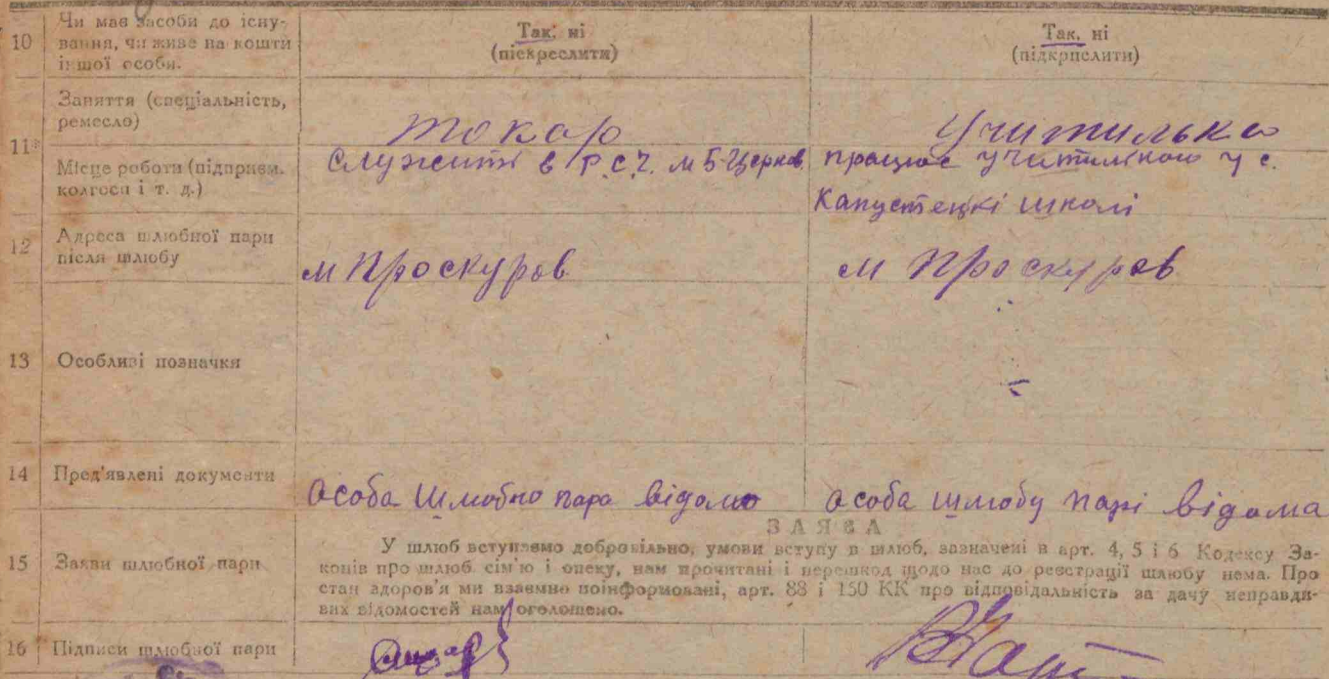 10 Чи має засоби до існу-
вання, чи живе на кошти
іншої особи.
Так, ні
(піекреслити)
Так, ні
(підкрпслити)
11 Заняття (спеціальність,
ремесло)
токар
Учитилька
Місце роботи (підприєм.
колгосп і т. д.)
Служить в Р.С.Ч. м Б-Церков
працює учитилькою у с.
Капустецкі школі
12 Адреса шлюбної пари
після шлюбу
м Проскуров
м Проскуров
13 Особливі позначкя
14 Пред'явлені документи
особа Шлюбно пара відомо
особа шлюбу парі відома
ЗАЯВА
15 Заяви шлюбної пари
У шлюб вступаємо добровільно, умови вступу в шлюб, зазначені в арт. 4, 5 і 6 Кодексу За-
конів про шлюб сім'ю і опеку, нам прочитані і перешкод щодо нас до реєстрації шлюбу нема. Про
стан здоров'я ми взаємно поінформовані, арт. 88 і 150 КК про відповідальність за дачу неправдя-
вих відомостей нам оголошено.
16 Підписи шлюбної пари